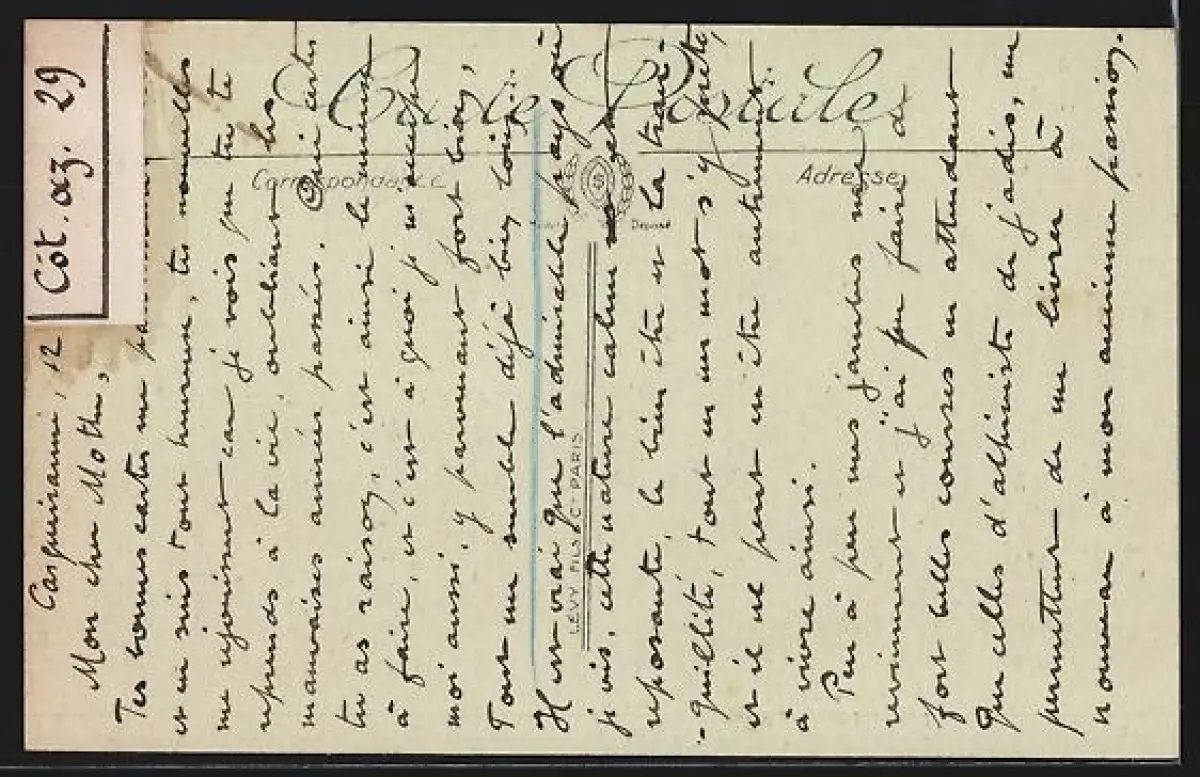 Côt. az. 29
Carte Postale
Correspondance
Adresse
LEVY FILS & Cie PARIS
Carqueiranne, 12
Mon cher Mothu,
Tes bonnes cartes me
et me mis tout heureux, tes nouvelles
me réjouissent car je vois que tu te
reprends à la vie, oubliant les
mauvaises années passées. Oui certes
tu as raison, c'est ainsi le mieux
à faire, et c'est à quoi je
moi aussi, y parvenant fort bien,
Tout me semble déjà bien loin.
Il est vrai que l'admirable pays où
je vis, cette nature calme et
reposante, le bien être et la tran-
-quillité, tout en un mot s'y prête,
et il ne peut en être autrement
à vivre ainsi.
Peu à peu mes jambes me
reviennent et j'ai pu faire de
fort belles courses en attendant
que celles d'alpiniste de jadis, me
permettent de me livrer à
nouveau à mon ancienne passion.